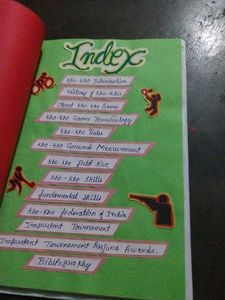 Index
Kho-Kho Introduction
History of Kho-Kho
About Kho-Kho Game
Kho-Kho Game Terminology
Kho-Kho Rules
Kho-Kho Ground Measurement
Kho-Kho field Size
Kho-Kho Skills
fundamental Skills
Kho-Kho federation of India
Important Tournament
Important Tournament Arjuna Awards.
Bibliography